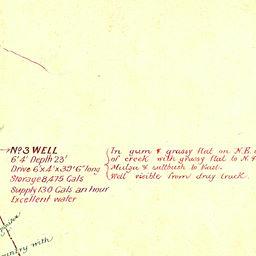 No 3 WELL
6' 4' Depth 23'
Drive 6' x 4' x 39' 6" long
Storage 8,475 Gals
Supply 130 Gals an hour
Excellent water
In gum & grassy flat on N.E.
of creek with grassy flat to N. &
Mulga & saltbush to East.
Well visible from dray track.
with